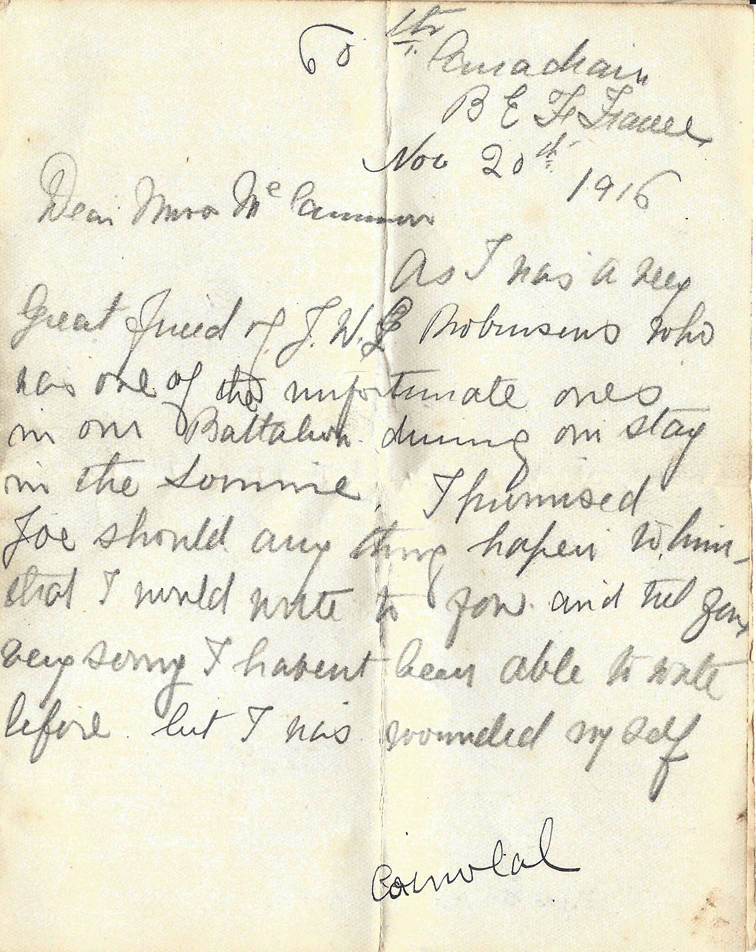 60th Canadian
B E F France
Nov 20th 1916
Dear Miss Mc Cammon
As I was a very
Great friend of J. W. G Robinsons who
was one of the unfortunate ones
in our Battalion during our stay
in the Somme. I promised
Joe should any thing hapen to him
that I would write to you and tell you
very sorry I havent been able to write
before but I was wounded my self